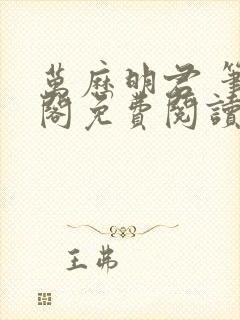 萬曆明君 筆
閣免費閱讀
王弗